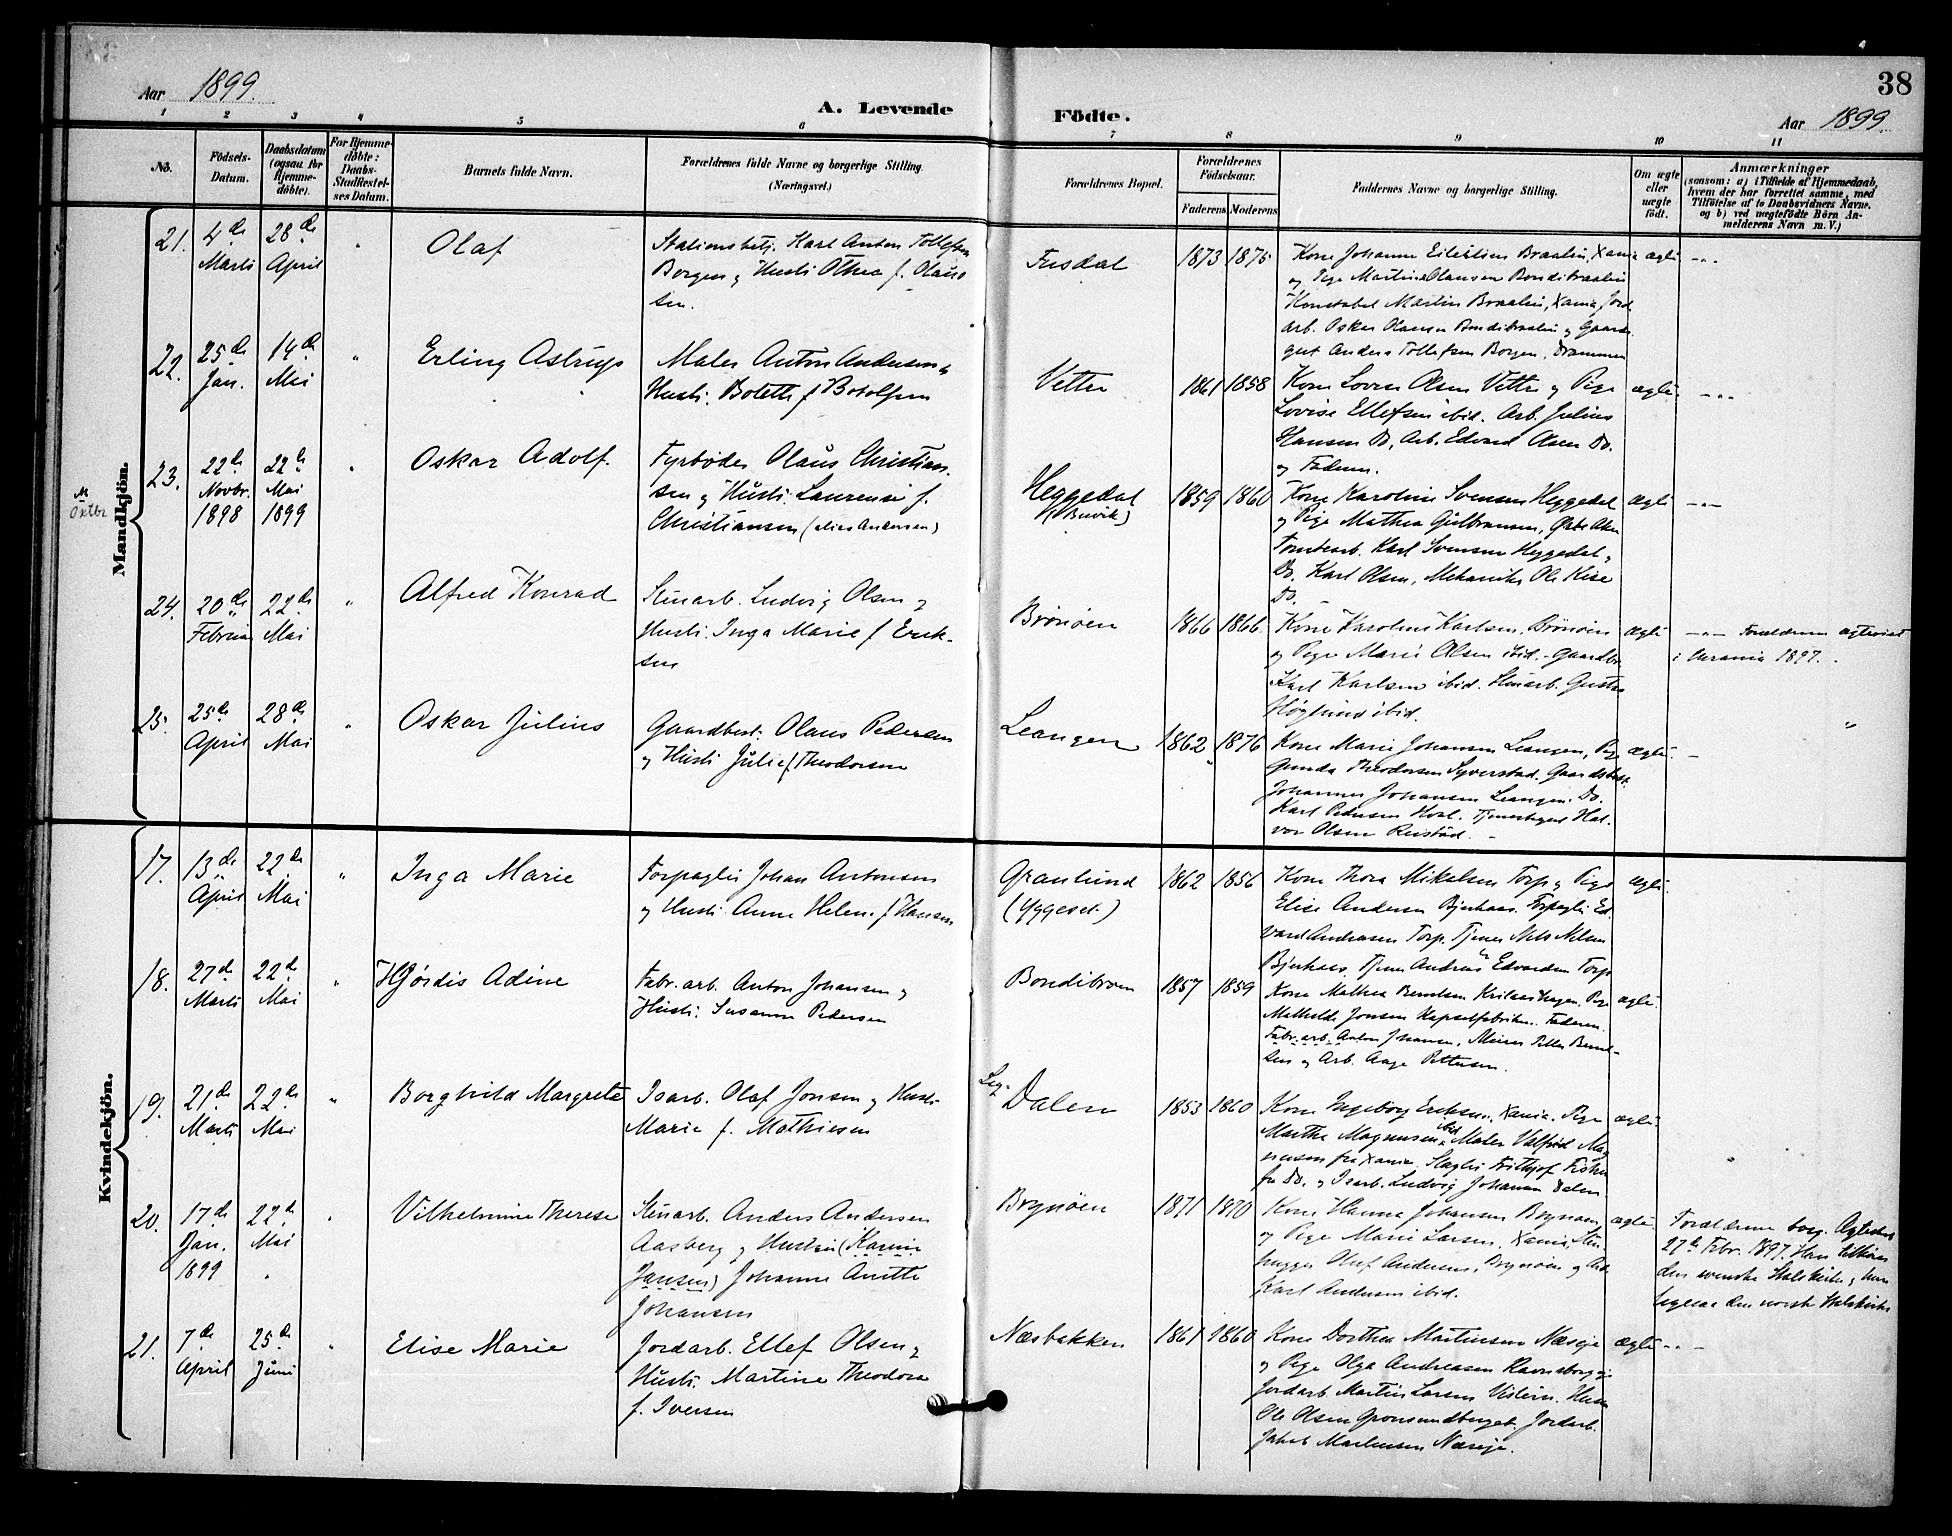 38
Aar 1899.
A. Levende
Födte.
Aar 1899.
1 2 3 4 5 6 7 8 9 10 11
No.
Födsels-
Datum.
Daabsdatum
(ogsaa for
Hjemme-
döbte).
For Hjemme-
döbte:
Daabs-
Stadfæstel-
ses Datum.
Barnets fulde Navn.
Forældrenes fulde Navne og borgerlige Stilling.
(Næringsvei.)
Forældrenes Bopæl.
Forældrenes
Födselsaar.
Faderens Moderens
Faddernes Navne og borgerlige Stilling.
Om ægte
eller
uægte
födt.
Anmærkninger
(saasom: a) i Tilfælde af Hjemmedaab,
hvem der har forrettet samme, med
Tilföielse af to Daabsvidners Navne.
og b) ved uægtefödte Börn An-
melderens Navn m. V.)
Mandkjön.
21.
4de
Marts
28de
April
Olaf
Stationsbetj. Karl Anton Tollefsen
Borgen og Hustru Othea f. Olaus
sen.
Fusdal
1873 1875
Kone Johanne Eilertsen Braaten, Xania
og Pige Martine Olaussen Bondibraaten
Konstabel Martin Braaten, Xania, Jord
arb. Oskar Olausen Bondibraaten og Gaard-
gut Anders Tollefsen Borgen, Drammen
ægte
22.
25de
Jan.
14de
Mai
Erling Astrup
Maler Anton Andersen og
Hustr. Botette f. Botolfsen
Vettre
1861 1858
Kone Lovise Olsen Vettre og Pige
Lovise Ellefsen ibid. Arb. Julius
Hansen Do, Arb. Edvard Olsen Do.
og Faderen.
ægte
23.
22de
Novbr.
1898
22de
Mai
1899
Oskar Adolf.
Fyrbøder Olaus Christian-
sen og Hustr. Laurense f.
Christiansen (alias Andersen)
Heggedal
(Buvik)
1859 1860
Kone Karoline Svensen Heggedal
og Pige Mathea Gulbransen,
Tomtearb. Karl Svensen Heggedal,
Do. Karl Olsen, Mekaniker Ole Kise
Do.
ægte
24.
20de
Februar
22de
Mai
Alfred Konrad
Stenarb. Ludvig Olsen og
Hustr. Inga Marie f. Erik-
sen
Brønøen
1866 1866.
Kone Karoline Karlsen, Brønøen
og Pige Marie Olsen ibid. Gaardbr.
Karl Karlsen ibid. Stenarb. Gustav
Høglund ibid.
ægte
Forældrene ægteviet
i Urania 1897.
25.
25de
April
28de
Mai
Oskar Julius
Gaardbest. Olaus Pedersen
og Hustr. Julie f. Theodorsen
Leangen
1862 1876
Kone Marie Johansen Leangen, Pige
Gunda Theodorsen Syverstad. Gaardsbest.
Johannes Johansen Leangen. Do.
Karl Pedersen Hval. Tjenestegut Hal-
vor Olsen Reistad.
ægte
Kvindekjön.
17.
13de
April
22de
Mai
Inga Marie
Forpagter Johan Antonsen
og Hustr. Anne Helene f. Hansen
Granlund
(Yggeset.)
1862 1856
Kone Thora Mikalsen Torp og Pige
Elise Andersen Bjerkaas. Forpagter Ed-
vard Andreasen Torp. Tjener Nels Nelsen
Bjerkaas, Tjener Andreas Edvardsen Torp
ægte
18.
27de
Marts
22de
Mai
Hjørdis Adine
Fabr.arb. Anton Johansen og
Hustr. Susanne Pedersen
Bondibroen
1857 1859
Kone Mathea Berntsen Pige
Mathilde Jonsen Kapselfabriken. Faderen
Fabr.arb. Anton Johansen, Murer Peter Bernt-
sen og Arb. Aage Pettersen.
ægte
19.
21de
Marts
22de
Mai
Borghild Margrete
Isarb. Olaf Jonsen og Hustr.
Marie f. Mathisen
Dalen
1853 1860
Kone Ingeborg Eriksen, Xania. Pige
Martha Magnussen ibid, Maler Valfrid Mag-
nussen fra Xania, Slagter Frithjof
fra Do. og Isarb. Ludvig Johansen Dalen
ægte
20.
17de
Jan.
1899
22de
Mai
Vilhelmine Therese
Stenarb. Anders Andersen
Aasberg og Hustru (Karine
Jansen) Johanne Anette
Johansen
Brynøen
1871 1870
Kone Hanna Johansen Brynøen,
og Pige Marie Larsen, Xania, Sten-
hugger Oluf Andersen, Brynøen og Arb.
Karl Andersen ibid.
ægte
Forældrene borg. Ægteviet
27de Febr. 1897. Han tilhører
den svenske Statskirke, hun
den norske Statskirke
21.
7de
April
25de
Juni
Elise Marie
Jordarb. Ellef Olsen og
Hustr. Martine Theodora
f. Iversen
Næsbakken
1861 1860
Kone Dorthea Martinsen Næseje
og Pige Olga Andreasen Ravnsborgeje
Jordarb. Martin Larsen
Ole Olsen Grønsundberget. Jordarb.
Jakob Martinsen Næseje.
ægte